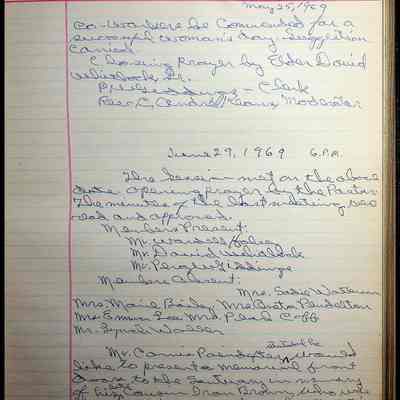 May 25, 1969
co-workers be commended for a
successful woman's day. Suggestion
carried.
Closing prayer by Elder David
Whitlock, Sr.
Giddings - Clerk
Rev. C. Andrew Keans, Moderator
June 29, 1969 6 P.M.
The Session met on the above
date. Opening prayer by the Pastor.
The minutes of the last meeting was
read and approved.
Members Present:
Mr. Wardell
Mr. David Whitlock
Mr. Giddings
Members Absent:
Mrs. Sadie
Mrs. Marie Mrs. Pendelton
Mrs. Emma Lee Mrs. Pearl Goff
Mr.
Mr. would
like to present a memorial front
door to the Sanctuary in memory
of his Cousin Brown, who was